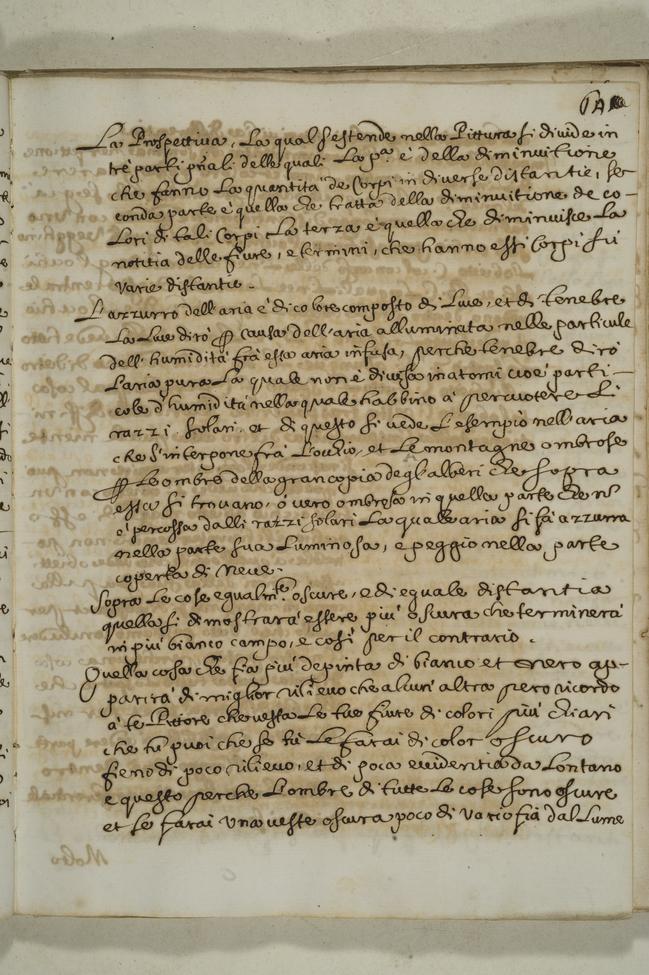 La Prospettiva, La qual s'estende nella Pittura si divide in
tre parti p̃nali delle quali La p.ª è della diminuitione
che fanno La quantità de Corpi in diverse distantie, se-
conda parte è quella che tratta della diminuitione de co-
lori di tali Corpi La terza è quella che diminuisce La
notitia delle fiure, e termini, che hanno essi Corpi su
varie distantie.
L'azzurro dell'aria è di colore composto di Luce, et di tenebre
La Luce dirò causa dell'aria alluminata nelle particule
dell'humidità frà essa aria infusa, perche tenebre dirò
L'aria pura La quale non è divisa in atomi cioè parti-
cole d'humidità nella quale habbino à percuotere Li
razzi solari, et di questo si vede L'esempio nell'aria
che s'interpone frà L'occhio, et Le montagne ombrose
Le ombre della gran copia degl'alberi che sopra
essa si trovano, ò vero ombrosa in quella parte che nõ
è percossa dalli razzi solari La quale aria si fà azzurra
nella parte sua Luminosa, e peggio nella parte
coperta di Neve.
Sopra Le cose egualm.te oscure, e di equale distantia
quella si dimostrarà essere più oscura che terminerà
in più bianco campo, e così per il contrario.
Quella cosa che fia più depinta di bianco et nero ap-
parirà di miglior rilievo che alcuri altra pero ricordo
à te Pittore che vesta Le tue fiure di colori più chiari
che tu puoi che se tu Le farai di color oscuro
fieno di poco rilievo, et di poca evidentia da Lontano
e questo perche L'ombre di tutte Le cose sono oscure
et se farai una veste oscura poco di vario fia dal Lume